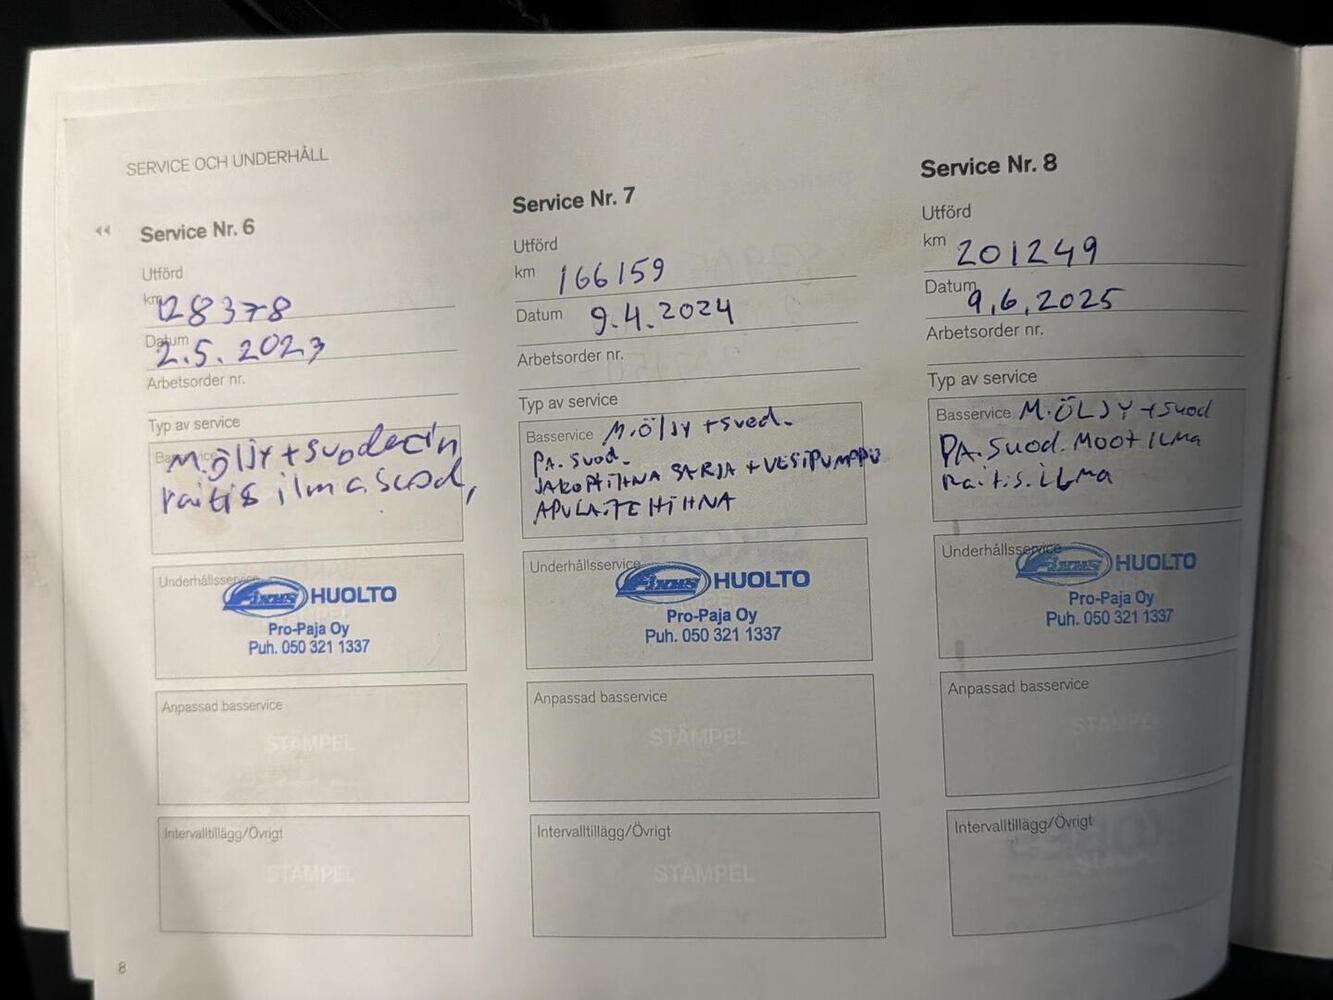 SERVICE OCH UNDERHÅLL
Service Nr. 6
Utförd
km 128378
Datum 2.5.2023
Arbetsorder nr.
Typ av service
Basservice M.öljy + suodatin
raitis ilma suod,
Underhållsservice
HUOLTO
Pro-Paja Oy
Puh. 050 321 1337
Anpassad basservice
STÄMPEL
Intervalltillägg/Övrigt
STÄMPEL
8
Service Nr. 7
Utförd
km 166159
Datum 9.4.2024
Arbetsorder nr.
Typ av service
Basservice M.öljy + suod.
PA. suod.
JAKOPÄIHNA SARJA + VESIPUMPPU
APULAITE HIHNA
Underhållsservice
HUOLTO
Pro-Paja Oy
Puh. 050 321 1337
Anpassad basservice
STÄMPEL
Intervalltillägg/Övrigt
STÄMPEL
Service Nr. 8
Utförd
km 201249
Datum 9.6.2025
Arbetsorder nr.
Typ av service
Basservice M.ÖLJY + suod
PA. Suod. MOOT ILMA
raitis. ilma
Underhållsservice
HUOLTO
Pro-Paja Oy
Puh. 050 321 1337
Anpassad basservice
STÄMPEL
Intervalltillägg/Övrigt